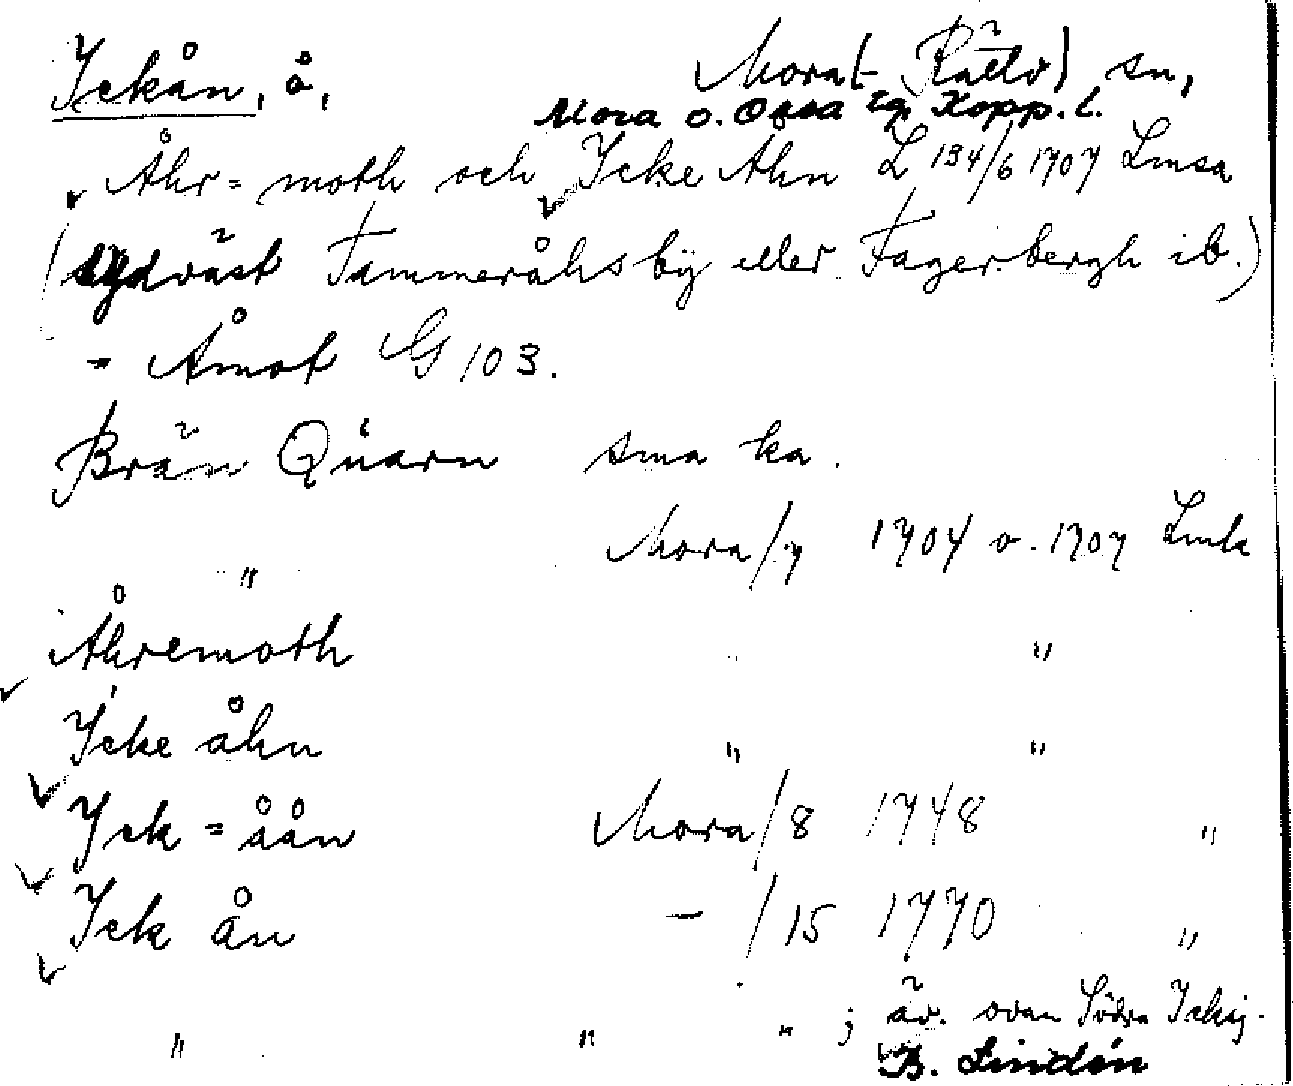 Ickån, å, Mora (- Rättv) sn,
Mora o. Orsa tg. Kopp. l.
Åhr=moth och Icke Åhn L 134/6 1707 Lmsa
(sydväst Fammeråhsby eller Fagerbergh ib.)
- Åmot G 103.
Brän Quarn sma ka.
Mora/7 1704 o. 1707 Lmk
"
Åhremoth "
Icke åhn " "
Yck=åån Mora/8 1748 "
Ick ån - /15 1770 "
" " " ; äv. ovan Södra Icksj.
B. Lindén